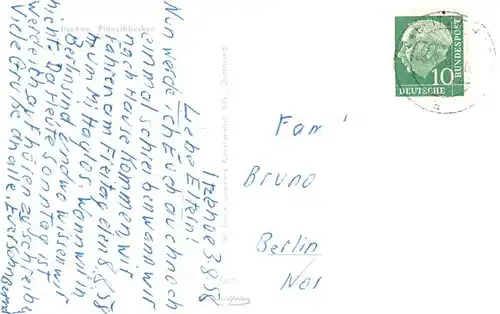 Itzehoe, Planschbecken
Itzehoe 3.8.58
Liebe Eltern!
Nun werde ich Euch auch noch
einmal schreiben wann wir
nach Hause kommen, wir
fahren am Freitag den 8.8.58
zum Mittag los. Wann wir in
Berlin sind und wo wissen wir
nicht. Da Heute Sonntag ist
werde ich aufhören zu schreiben
Viele Grüße an alle, Euer
DEUTSCHE
BUNDESPOST
10
Fam
Bruno
Berlin